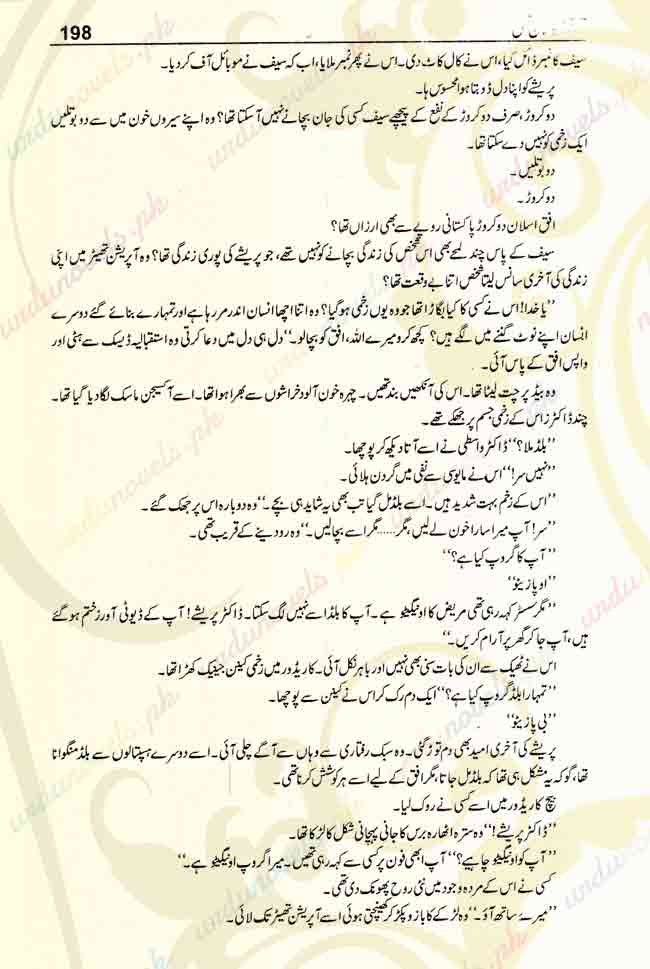 198
سیف کا نمبر ڈائل کیا، اس نے کال کاٹ دی۔ اس نے پھر نمبر ملایا، اب کہ سیف نے موبائل آف کر دیا۔
پریشے کو اپنا دل ڈوبتا ہوا محسوس ہا۔
دو کروڑ، صرف دو کروڑ کے نفع کے پیچھے سیف کسی کی جان بچانے نہیں آ سکتا تھا؟ وہ اپنے سیروں خون میں سے دو بوتلیں
ایک زخمی کو نہیں دے سکتا تھا۔
دو بوتلیں۔
دو کروڑ۔
افق ارسلان دو کروڑ پاکستانی روپے سے بھی ارزاں تھا؟
سیف کے پاس چند لمحے بھی اس شخص کی زندگی بچانے کو نہیں تھے، جو پریشے کی پوری زندگی تھا؟ وہ آپریشن تھیٹر میں اپنی
زندگی کی آخری سانس لیتا شخص اتنا بے وقعت تھا؟
’’یا خدا! اس نے کسی کا کیا بگاڑا تھا جو وہ یوں زخمی ہو گیا؟ وہ اتنا اچھا انسان اندر مر رہا ہے اور تمہارے بنائے گئے دوسرے
انسان اپنے نوٹ گننے میں لگے ہیں؟ کچھ کرو میرے اللہ، افق کو بچا لو۔‘‘ دل ہی دل میں دعا کرتی وہ استقبالیہ ڈیسک سے ہٹی اور
واپس افق کے پاس آئی۔
وہ بیڈ پر چت لیٹا تھا۔ اس کی آنکھیں بند تھیں۔ چہرہ خون آلود خراشوں سے بھرا ہوا تھا۔ اسے آکسیجن ماسک لگا دیا گیا تھا۔
چند ڈاکٹرز اس کے زخمی جسم پر جھکے تھے۔
’’بلڈ ملا؟‘‘ ڈاکٹر واسطی نے اسے آتا دیکھ کر پوچھا۔
’’نہیں سر!‘‘ اس نے مایوسی سے نفی میں گردن ہلائی۔
’’اس کے زخم بہت شدید ہیں۔ اسے بلڈ مل گیا تب بھی یہ شاید ہی بچے۔‘‘ وہ دوبارہ اس پر جھک گئے۔
’’سر! آپ میرا سارا خون لے لیں، مگر...... مگر اسے بچا لیں۔‘‘ وہ رو دینے کے قریب تھی۔
’’آپ کا گروپ کیا ہے؟‘‘
’’او پازیٹو‘‘
’’مگر سسٹر کہہ رہی تھی مریض کا او نیگیٹو ہے۔ آپ کا بلڈ اسے نہیں لگ سکتا۔ ڈاکٹر پریشے! آپ کے ڈیوٹی آورز ختم ہو گئے
ہیں، آپ جا کر گھر پر آرام کریں۔‘‘
اس نے ٹھیک سے ان کی بات سنی بھی نہیں اور باہر نکل آئی۔ کاریڈور میں زخمی کینن جینیک کھڑا تھا۔
’’تمہارا بلڈ گروپ کیا ہے؟‘‘ ایک دم رک کر اس نے کینن سے پوچھا۔
’’بی پازیٹو‘‘
پریشے کی آخری امید بھی دم توڑ گئی۔ وہ سبک رفتاری سے وہاں سے آگے چلی آئی۔ اسے دوسرے ہسپتالوں سے بلڈ منگوانا
تھا، گو کہ یہ مشکل ہی تھا کہ بلڈ مل جاتا، مگر افق کے لیے اسے ہر کوشش کرنا تھی۔
بیچ کاریڈور میں اسے کسی نے روک لیا۔
’’ڈاکٹر پریشے!‘‘ وہ سترہ اٹھارہ برس کا جانی پہچانی شکل کا لڑکا تھا۔
’’آپ کو او نیگیٹو چاہیے؟‘‘ آپ ابھی فون پر کسی سے کہہ رہی تھیں۔ میرا گروپ او نیگیٹو ہے۔‘‘
کسی نے اس کے مردہ وجود میں نئی روح پھونک دی تھی۔
’’میرے ساتھ آؤ۔‘‘ وہ لڑکے کا بازو پکڑ کر کھینچتی ہوئی اسے آپریشن تھیٹر تک لائی۔
urdunovels.pk